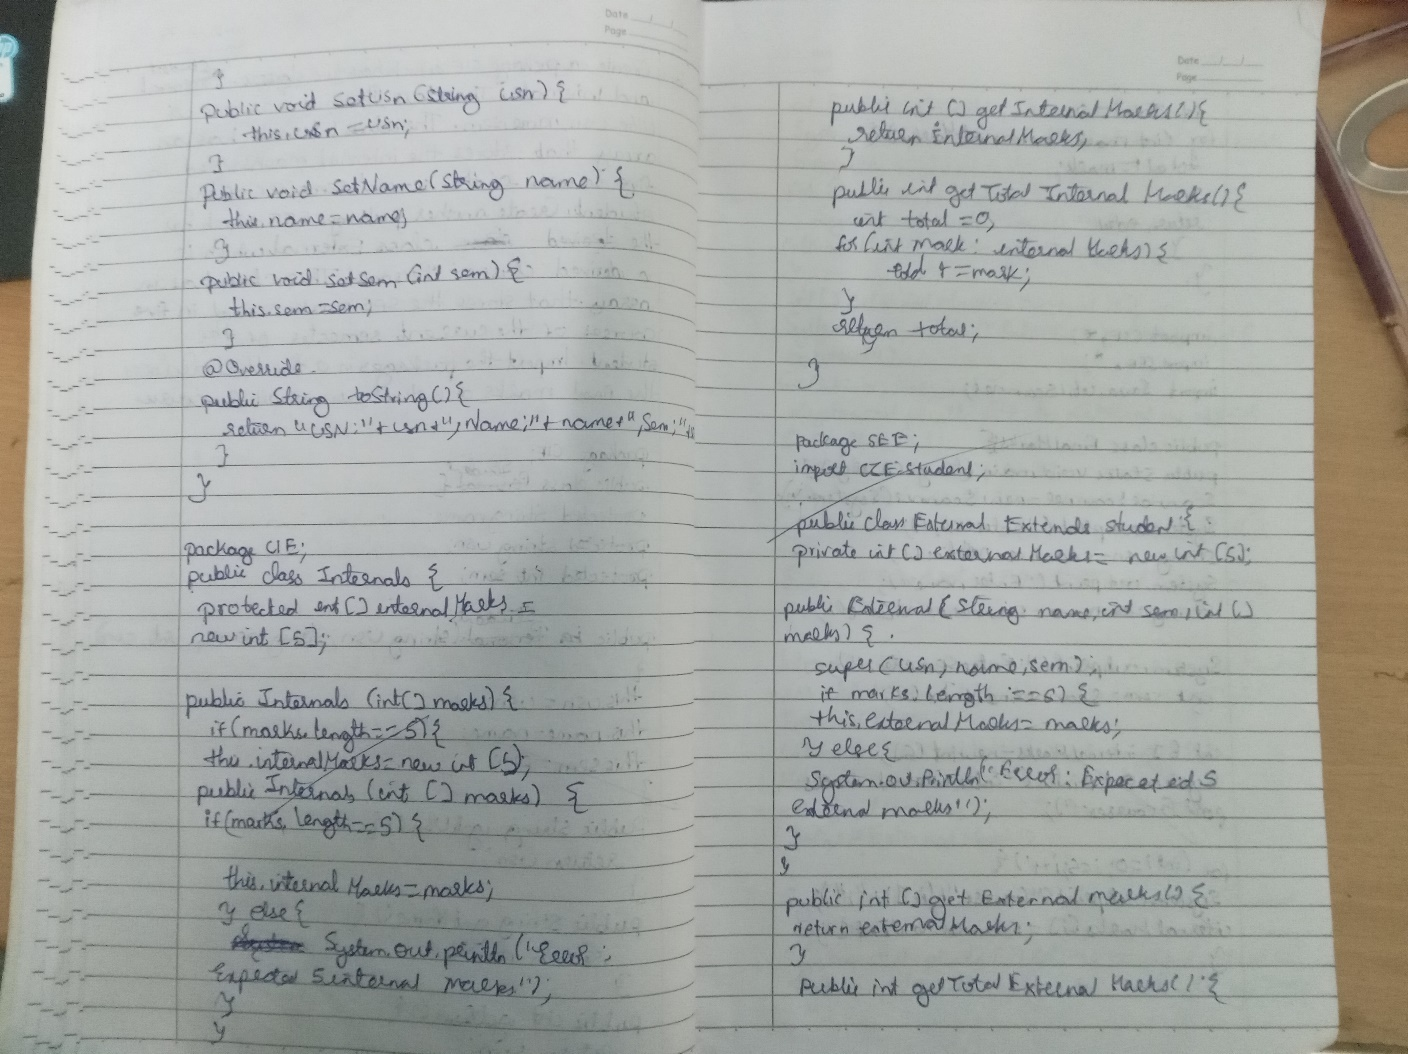 Date
Page
}
Public void setUsn (String usn) {
this.usn = usn;
}
Public void setName (String name) {
this.name = name;
}
public void setSem (int sem) {
this.sem = sem;
}
@Override
public String toString() {
return "USN:" + usn + ", Name:" + name + ", Sem:" +
}
}
package CIE;
public class Internals {
protected int [] internal Marks =
new int [5];
public Internals (int [] marks) {
if (marks.length == 5) {
this.internalMarks = new int [5];
public Internals (int [] marks) {
if (marks.length == 5) {
this.internal Marks = marks;
} else {
System.out.println ("Error :
Expected 5 internal marks");
}
}
Date
Page
public int [] get Internal Marks () {
return internal Marks,
}
public int get Total Internal Marks () {
int total = 0,
for (int mark : internal Marks) {
total += mark;
}
return total;
}
}
package SEE;
import CIE.Student;
public class External Extends student {
private int [] external Marks = new int [5];
public External (String name, int sem, int []
marks) {
super (usn, name, sem);
if marks.length == 5) {
this.external Marks = marks;
} else {
System.out.Println (": Error : Expecet ed 5
external marks");
}
}
public int [] get External marks () {
return external Marks;
}
Public int get Total External Marks () {